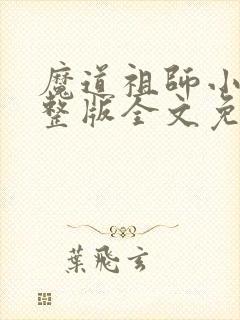 魔道祖師小
整版全文免
葉飛玄